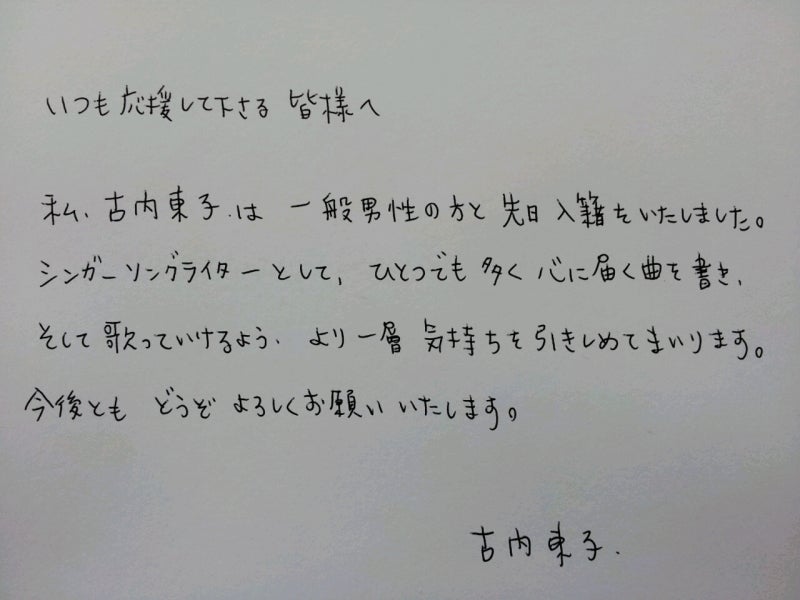 いつも応援して下さる 皆様へ
私、古内東子は 一般男性の方と 先日 入籍をいたしました。
シンガーソングライターとして、ひとつでも 多く 心に届く曲を書き、
そして 歌っていけるよう、より一層 気持ちを引きしめてまいります。
今後とも どうぞ よろしくお願い いたします。
古内東子.